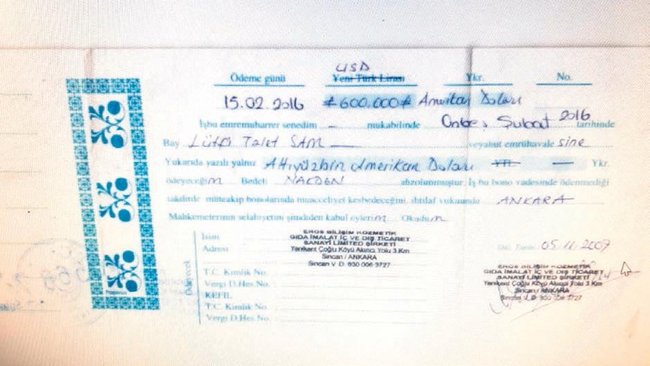 USD
Ödeme günü Yeni Türk Lirası Ykr. No.
15.02.2016 #600.000# Amerikan Doları
İşbu emremuharrer senedim mukabilinde Onbeş Şubat 2016 tarihinde
Bay Lütfi Talet SAM veyahut emrühavale sine
Yukarıda yazılı yalnız Altıyüzbin Amerikan Doları YTL Ykr.
ödeyeceğim Bedeli NAKDEN ahzolunmuştur. İş bu bono vadesinde ödenmediği
takdirde müteakip bonolarında muacceliyet kesbedeceğini, ihtilaf vukuunda ANKARA
Mahkemelerinin selahiyetini şimdiden kabul eylerim Okudum
Ödeyecek
İsim
Adresi
T.C. Kimlik No.
Vergi D.Hes.No.
KEFİL
T.C. Kimlik No.
Vergi D.Hes.No.
EROS BİLİŞİM KOZMETİK
GIDA İMALAT İÇ VE DIŞ TİCARET
SANAYİ LİMİTED ŞİRKETİ
Yenikent Çoğlu Köyü Akıncı Yolu 3.Km
Sincan / ANKARA
Sincan V.D. 630 006 3727
05.11.2007
EROS BİLİŞİM KOZMETİK
GIDA İMALAT İÇ VE DIŞ TİCARET
SANAYİ LİMİTED ŞİRKETİ
Yenikent Çoğlu Köyü Akıncı Yolu 3.Km
Sincan / ANKARA